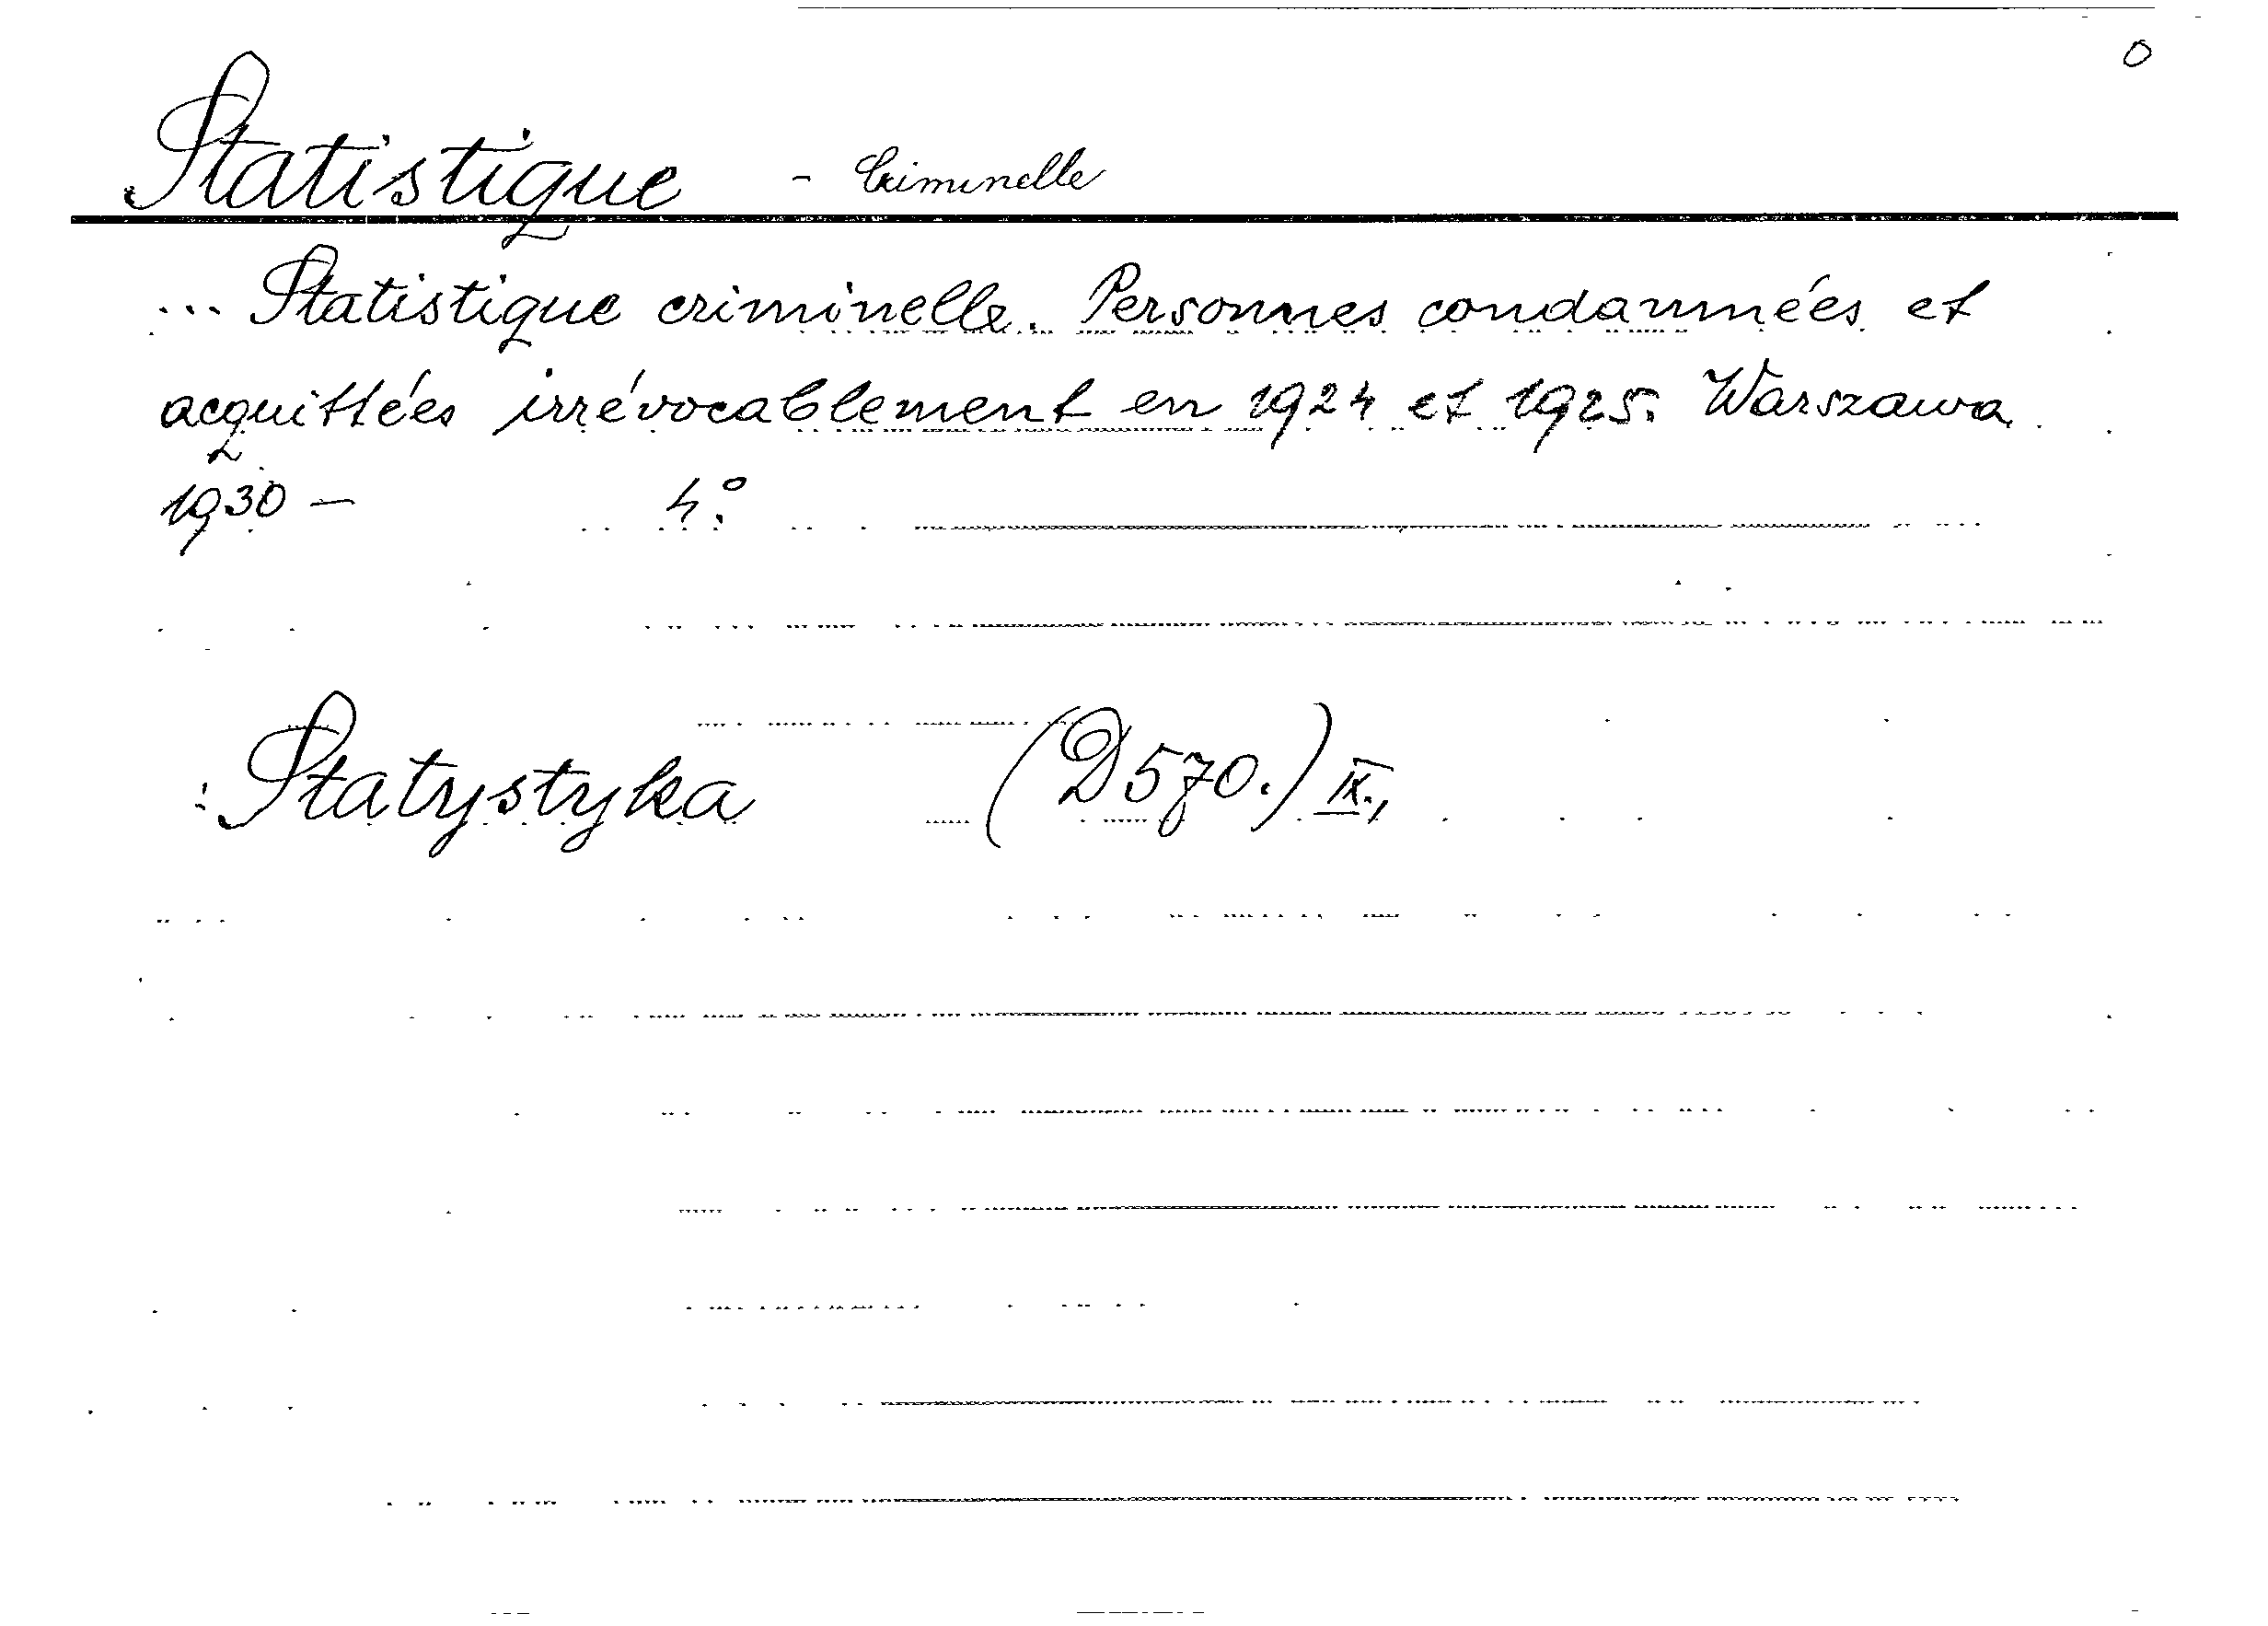 0
Statistique - Criminelle
... Statistique criminelle. Personnes condamnées et
acquittées irrévocablement en 1924 et 1925. Warszawa
1930 – 4.°
: Statystyka (D 570.) IX.,